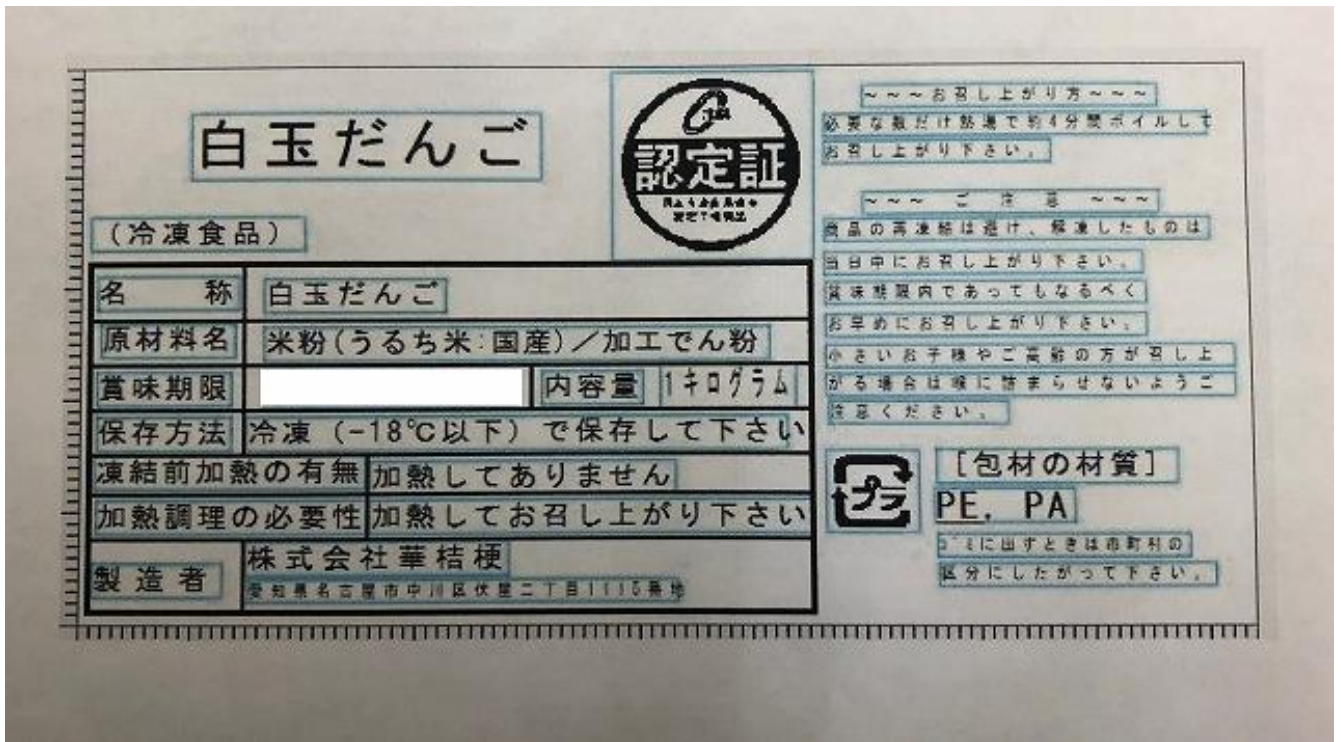 白玉だんご
認定証
(冷凍食品)
名 称 白玉だんご
原材料名 米粉(うるち米:国産)/加工でん粉
賞味期限 内容量 1キログラム
保存方法 冷凍(-18℃以下)で保存して下さい
凍結前加熱の有無 加熱してありません
加熱調理の必要性 加熱してお召し上がり下さい
製造者 株式会社華桔梗
愛知県名古屋市中川区伏屋二丁目1115番地
~~~お召し上がり方~~~
必要な数だけ熱湯で約4分間ボイルして
お召し上がり下さい。
~~~ ご 注 意 ~~~
商品の再凍結は避け、解凍したものは
当日中にお召し上がり下さい。
賞味期限内であってもなるべく
お早めにお召し上がり下さい。
小さいお子様やご高齢の方が召し上
がる場合は喉に詰まらせないようご
注意ください。
プラ
[包材の材質]
PE, PA
ゴミに出すときは市町村の
区分にしたがって下さい。